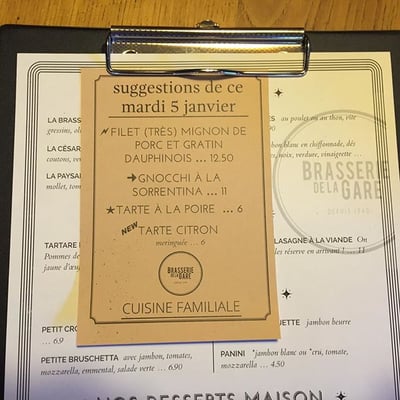 suggestions de ce
mardi 5 janvier
FILET (TRÈS) MIGNON DE
PORC ET GRATIN
DAUPHINOIS ... 12.50
GNOCCHI À LA
SORRENTINA ... 11
TARTE À LA POIRE ... 6
NEW TARTE CITRON
meringuée ... 6
BRASSERIE
DE LA GARE
CUISINE FAMILIALE
LA BRASS
gressins, oli
LA CÉSAR
coutons, ver
LA PAYSA
mollet, tom
TARTARE
Pommes de
jaune d'œuf
PETIT CRO
... 6.9
PETITE BRUSCHETTA avec jambon, tomates,
mozzarella, emmental, salade verte ... 6.90
ES au poulet ou au thon, vite
bon blanc en chiffonnade, dés
es, noix, verdure, vinaigrette ...
BRASSERIE
DE LA GARE
DEPUIS 1740
LASAGNE À LA VIANDE On
les réserve en arrivant ! ... 11
UETTE jambon beurre
PANINI *jambon blanc ou *cru, tomate,
mozzarella ... 4.50
NOS DESSERTS MAISON